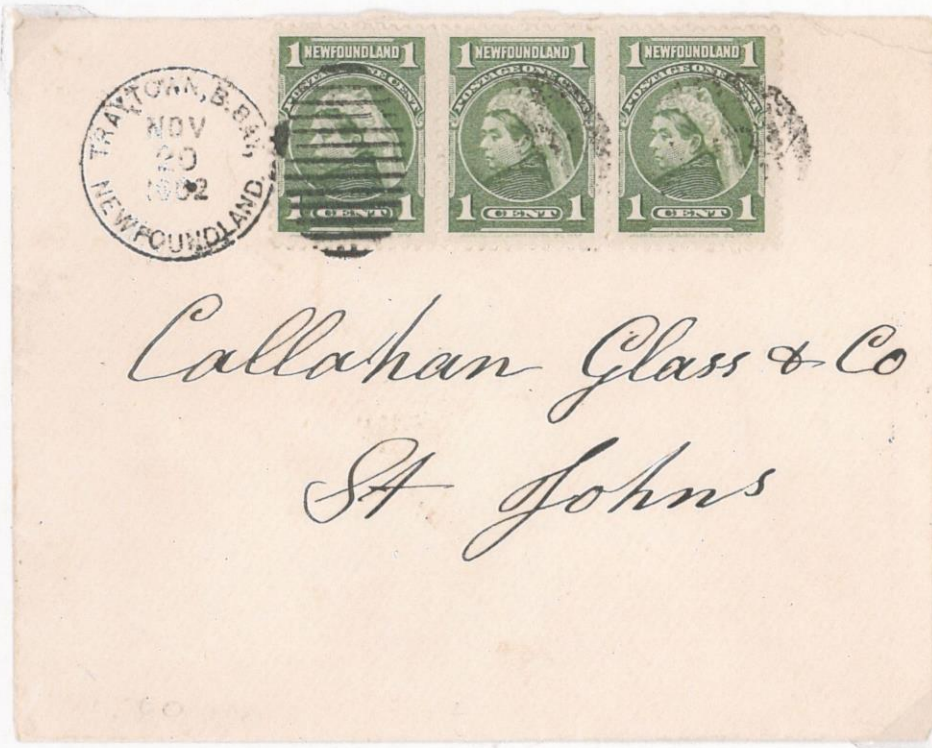 TRAYTOWN, B.BAY,
NOV
20
1902
NEWFOUNDLAND.
1 NEWFOUNDLAND 1
POSTAGE ONE CENT
1 CENT 1
1 NEWFOUNDLAND 1
POSTAGE ONE CENT
1 CENT 1
1 NEWFOUNDLAND 1
POSTAGE ONE CENT
1 CENT 1
Callahan Glass & Co
St Johns